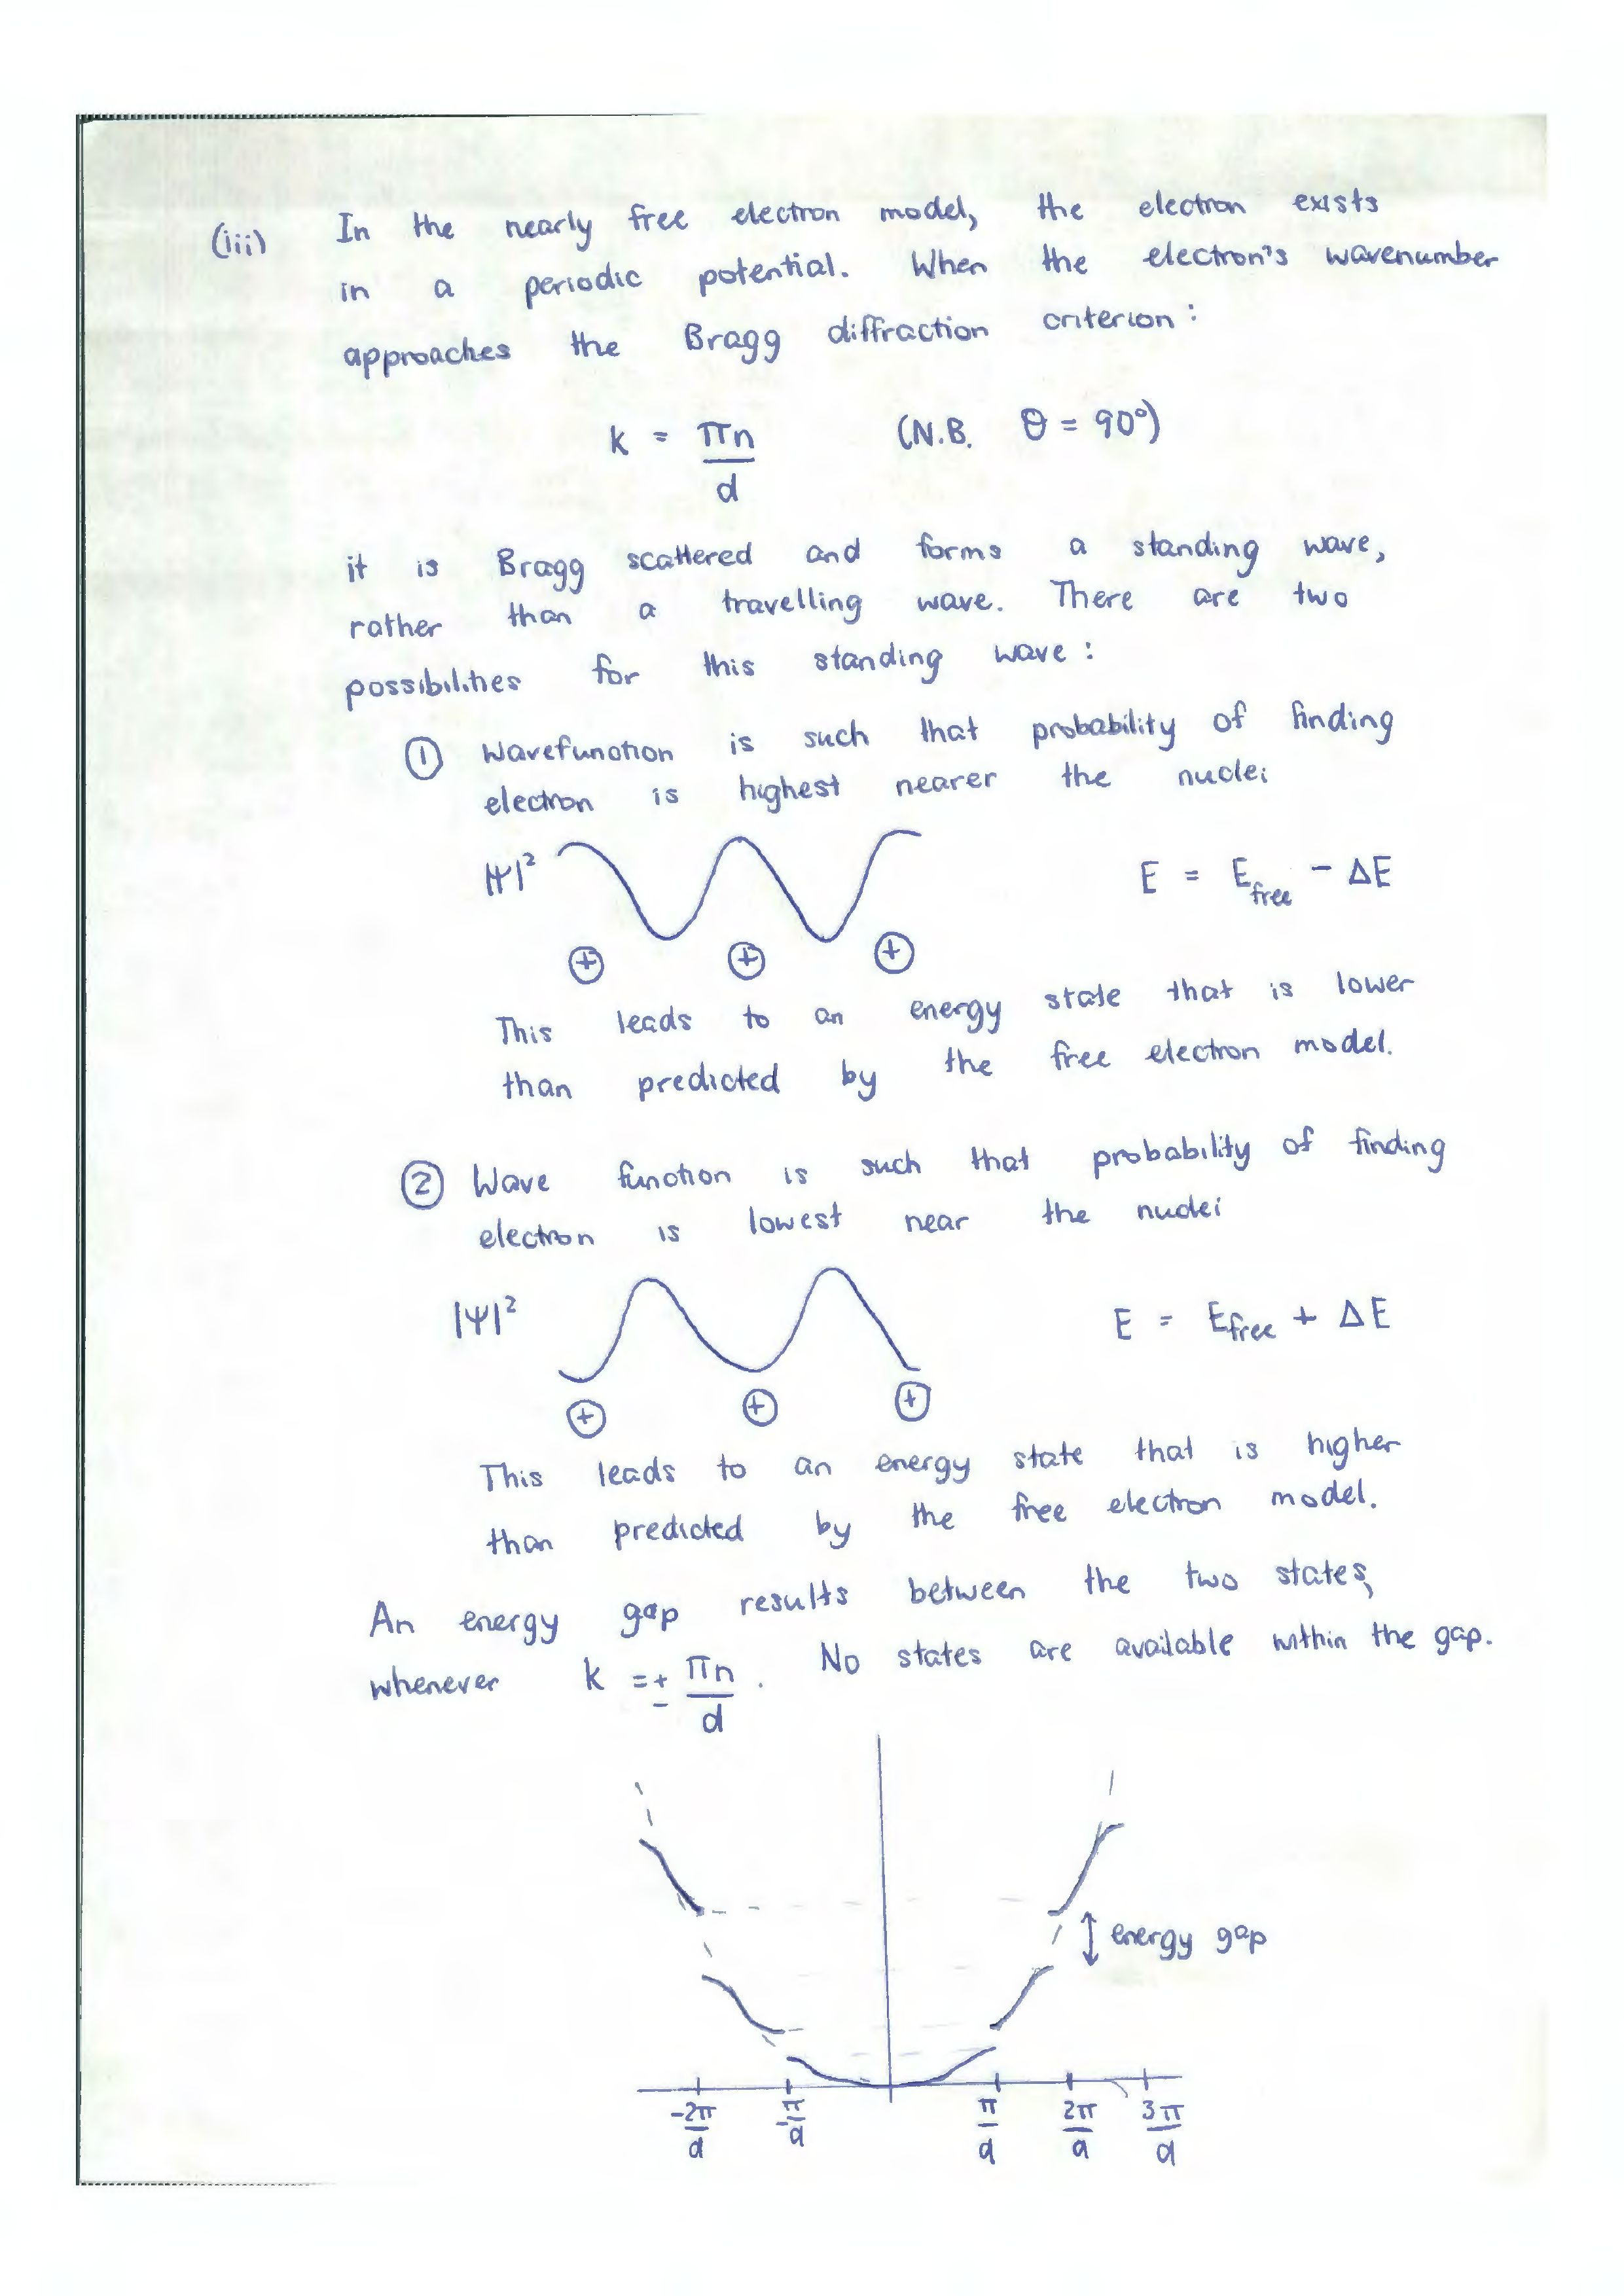 (iii) In the nearly free electron model, the electron exists
in a periodic potential. When the electron's wavenumber
approaches the Bragg diffraction criterion:
k = πn/d (N.B. θ = 90°)
it is Bragg scattered and forms a standing wave,
rather than a travelling wave. There are two
possibilities for this standing wave:
① Wavefunction is such that probability of finding
electron is highest nearer the nuclei
|Ψ|² E = E_free - ΔE
+ + +
This leads to an energy state that is lower
than predicted by the free electron model.
② Wave function is such that probability of finding
electron is lowest near the nuclei
|Ψ|² E = E_free + ΔE
+ + +
This leads to an energy state that is higher
than predicted by the free electron model.
An energy gap results between the two states,
whenever k = ± πn/d. No states are available within the gap.
energy gap
-2π/d -π/d π/d 2π/d 3π/d